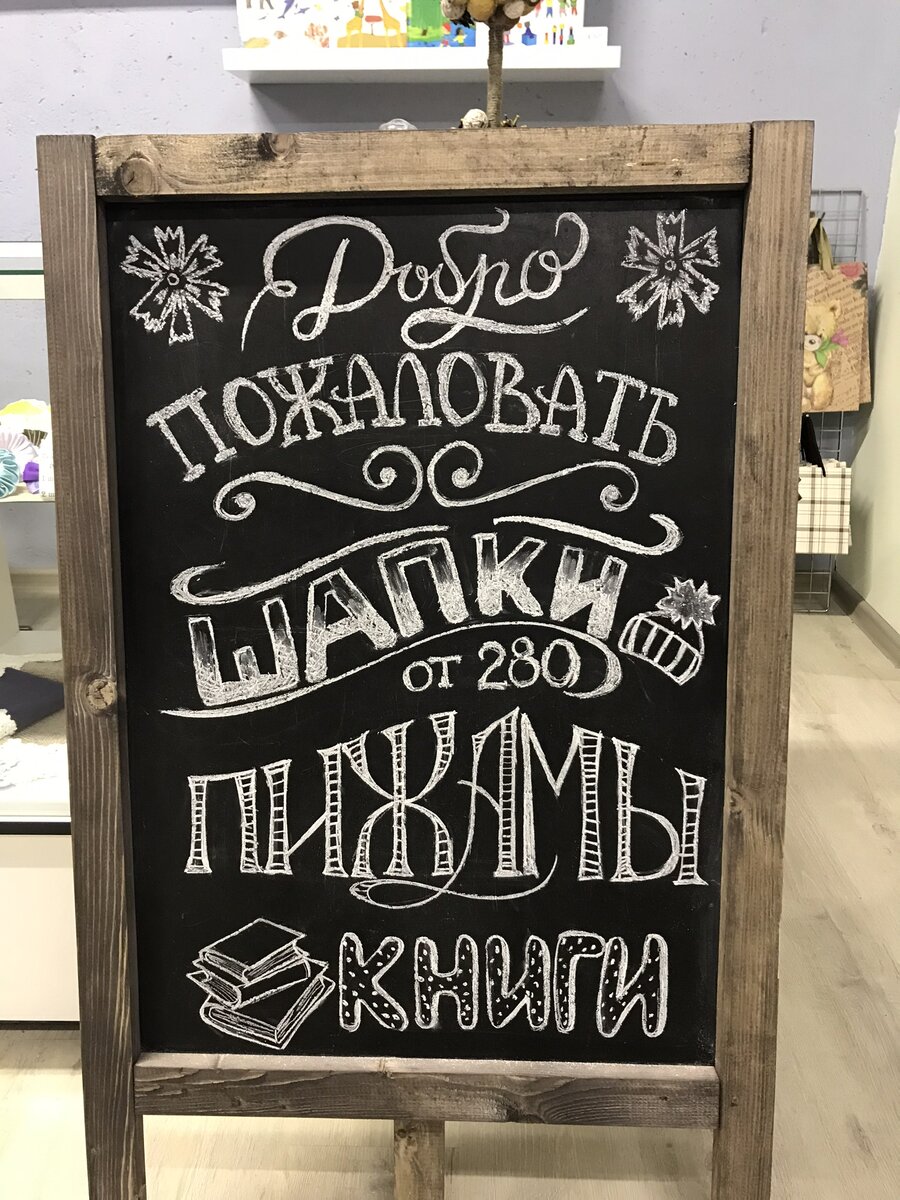 Добро
ПОЖАЛОВАТЬ
ШАПКИ
от 280
ПИЖАМЫ
КНИГИ